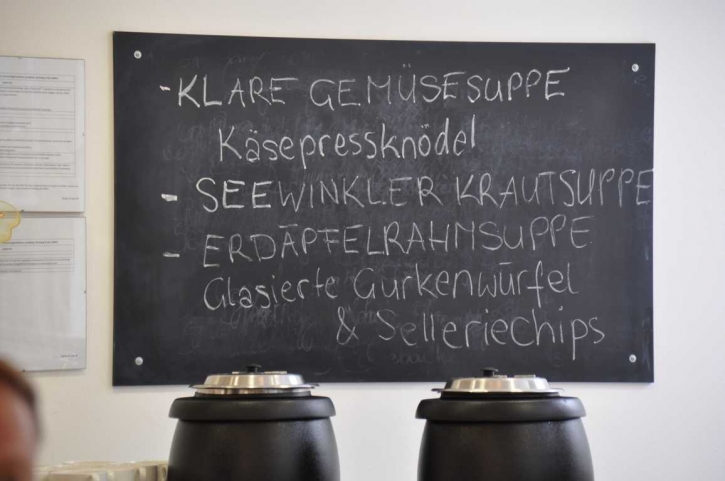 - KLARE GEMÜSESUPPE
Käsepressknödel
- SEEWINKLER KRAUTSUPPE
- ERDÄPFELRAHMSUPPE
Glasierte Gurkenwürfel
& Selleriechips